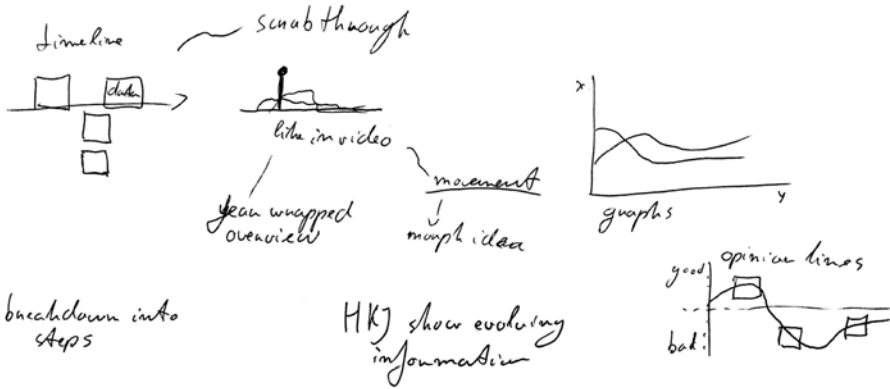 timeline
scrub through
data
like in video
year wrapped
overview
movement
morph idea
x
y
graphs
opinion lines
good:
bad:
breakdown into
steps
show evolving
information